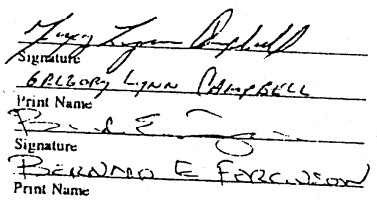 Gregory Lynn Campbell
Signature
GREGORY LYNN CAMPBELL
Print Name
Signature
BERNARD E FERGUSON
Print Name